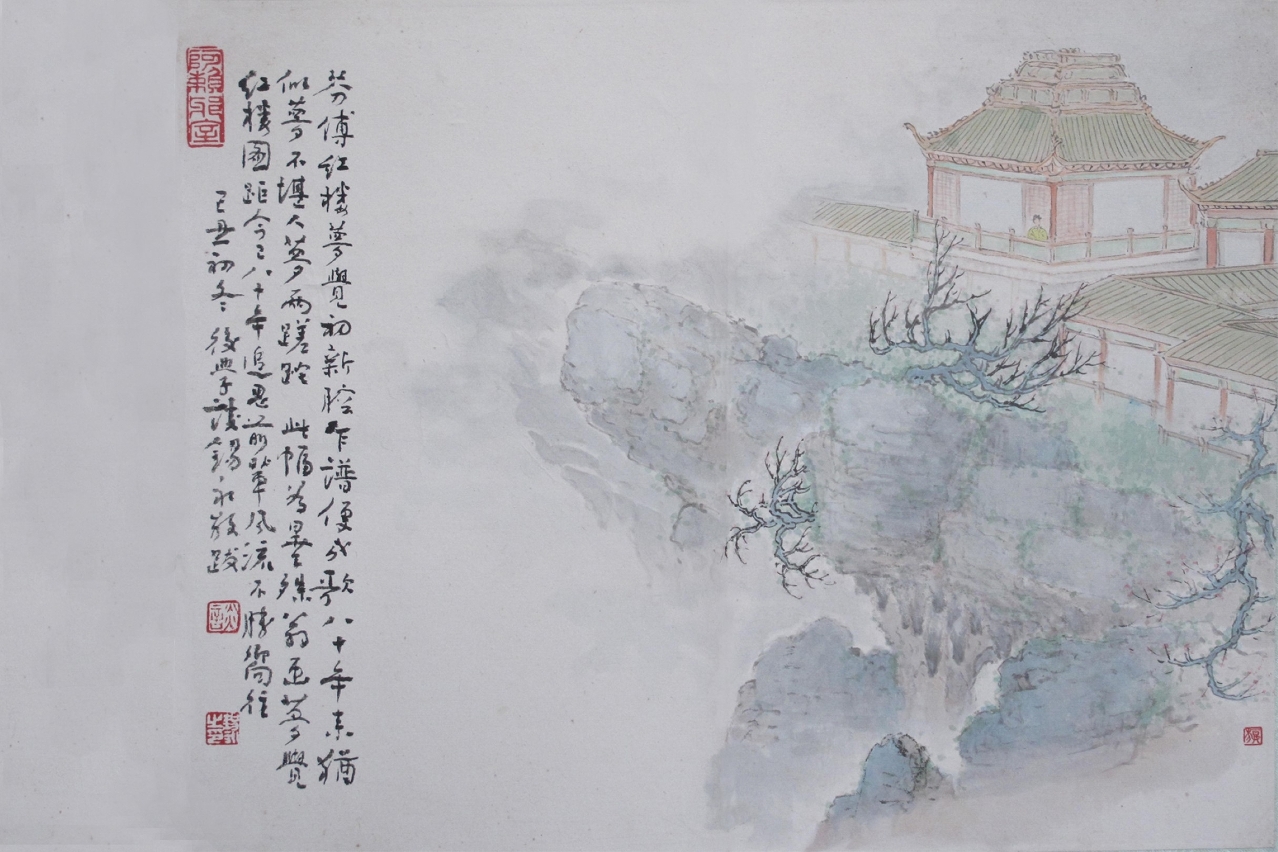 傅紅樓夢覺初新腔乍譜便成歌八十年來猶
似夢不堪人夢兩蹉跎 此幅為殊翁画夢覺
紅樓圖距今已八十年追思前輩風流不勝嚮往
己丑初冬後學談錫永敬跋
阿賴邪室
談